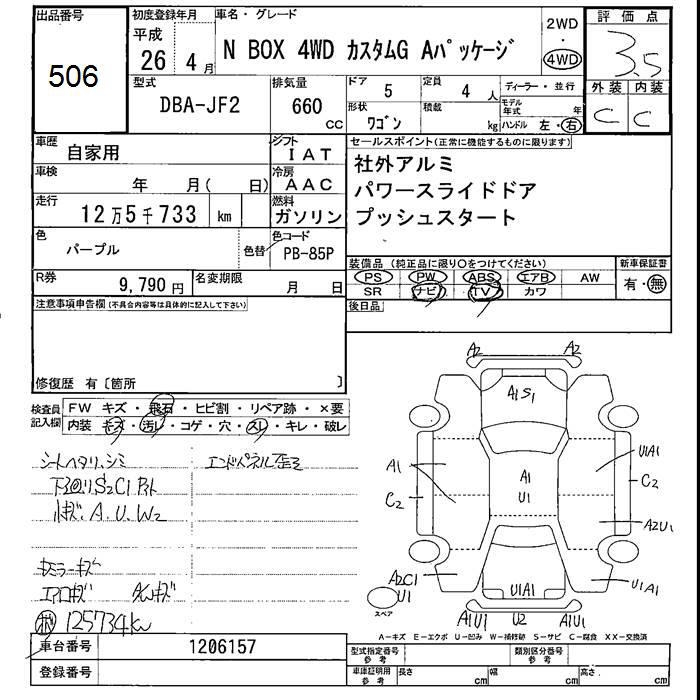 出品番号
506
初度登録年月
平成
26 4 月
車名・グレード
N BOX 4WD カスタムG Aパッケージ
2WD
・
4WD
評価点
3.5
外装 内装
C C
型式
DBA-JF2
排気量
660
CC
ドア
5
定員
4 人
ディーラー・並行
形状
ワゴン
積載
kg
モデル年式 年
ハンドル 左・右
車歴
自家用
シフト
IAT
車検
年 月( 日)
冷房
AAC
走行
12万5千733 km
燃料
ガソリン
色
パープル
色替
色コード
PB-85P
R券
9,790円
名変期限
月 日
セールスポイント(正常に機能するものに限ります)
社外アルミ
パワースライドドア
プッシュスタート
装備品 (純正品に限り○をつけてください)
PS PW ABS エアB AW
SR ナビ TV カワ
新車保証書
有・無
後日品
注意事項申告欄(不具合内容等は具体的に記入して下さい)
修復歴 有〔箇所 〕
検査員記入欄
FW キズ・飛石・ヒビ割・リペア跡・×要
内装 キズ・汚レ・コゲ・穴・スレ・キレ・破レ
シートヘタリ、シミ
エンドパネル歪ミ
下廻りS2C1
小キズ.A.U.W2
キミラーキズ
エアロキズ
125734km
A2 A2
A1S1
A1
C2
A1
U1
U1A1
C2
A2U1
A2C1
U1
U1A1
U1A1
A1U1 U2 A1U1
スペア
A－キズ E－エクボ U－凹み W－補修跡 S－サビ C－腐食 XX－交換済
車台番号
1206157
登録番号
型式指定番号
参考
類別区分番号
参考
車庫証明用
参考
長さ cm
幅 cm
高さ cm